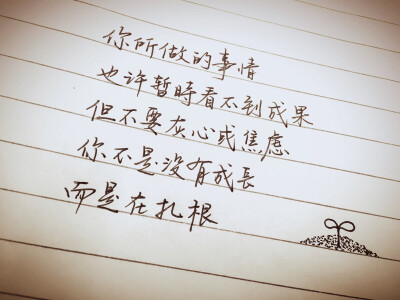 你所做的事情
也许暫時看不到成果
但不要灰心或焦虑
你不是没有成長
而是在扎根